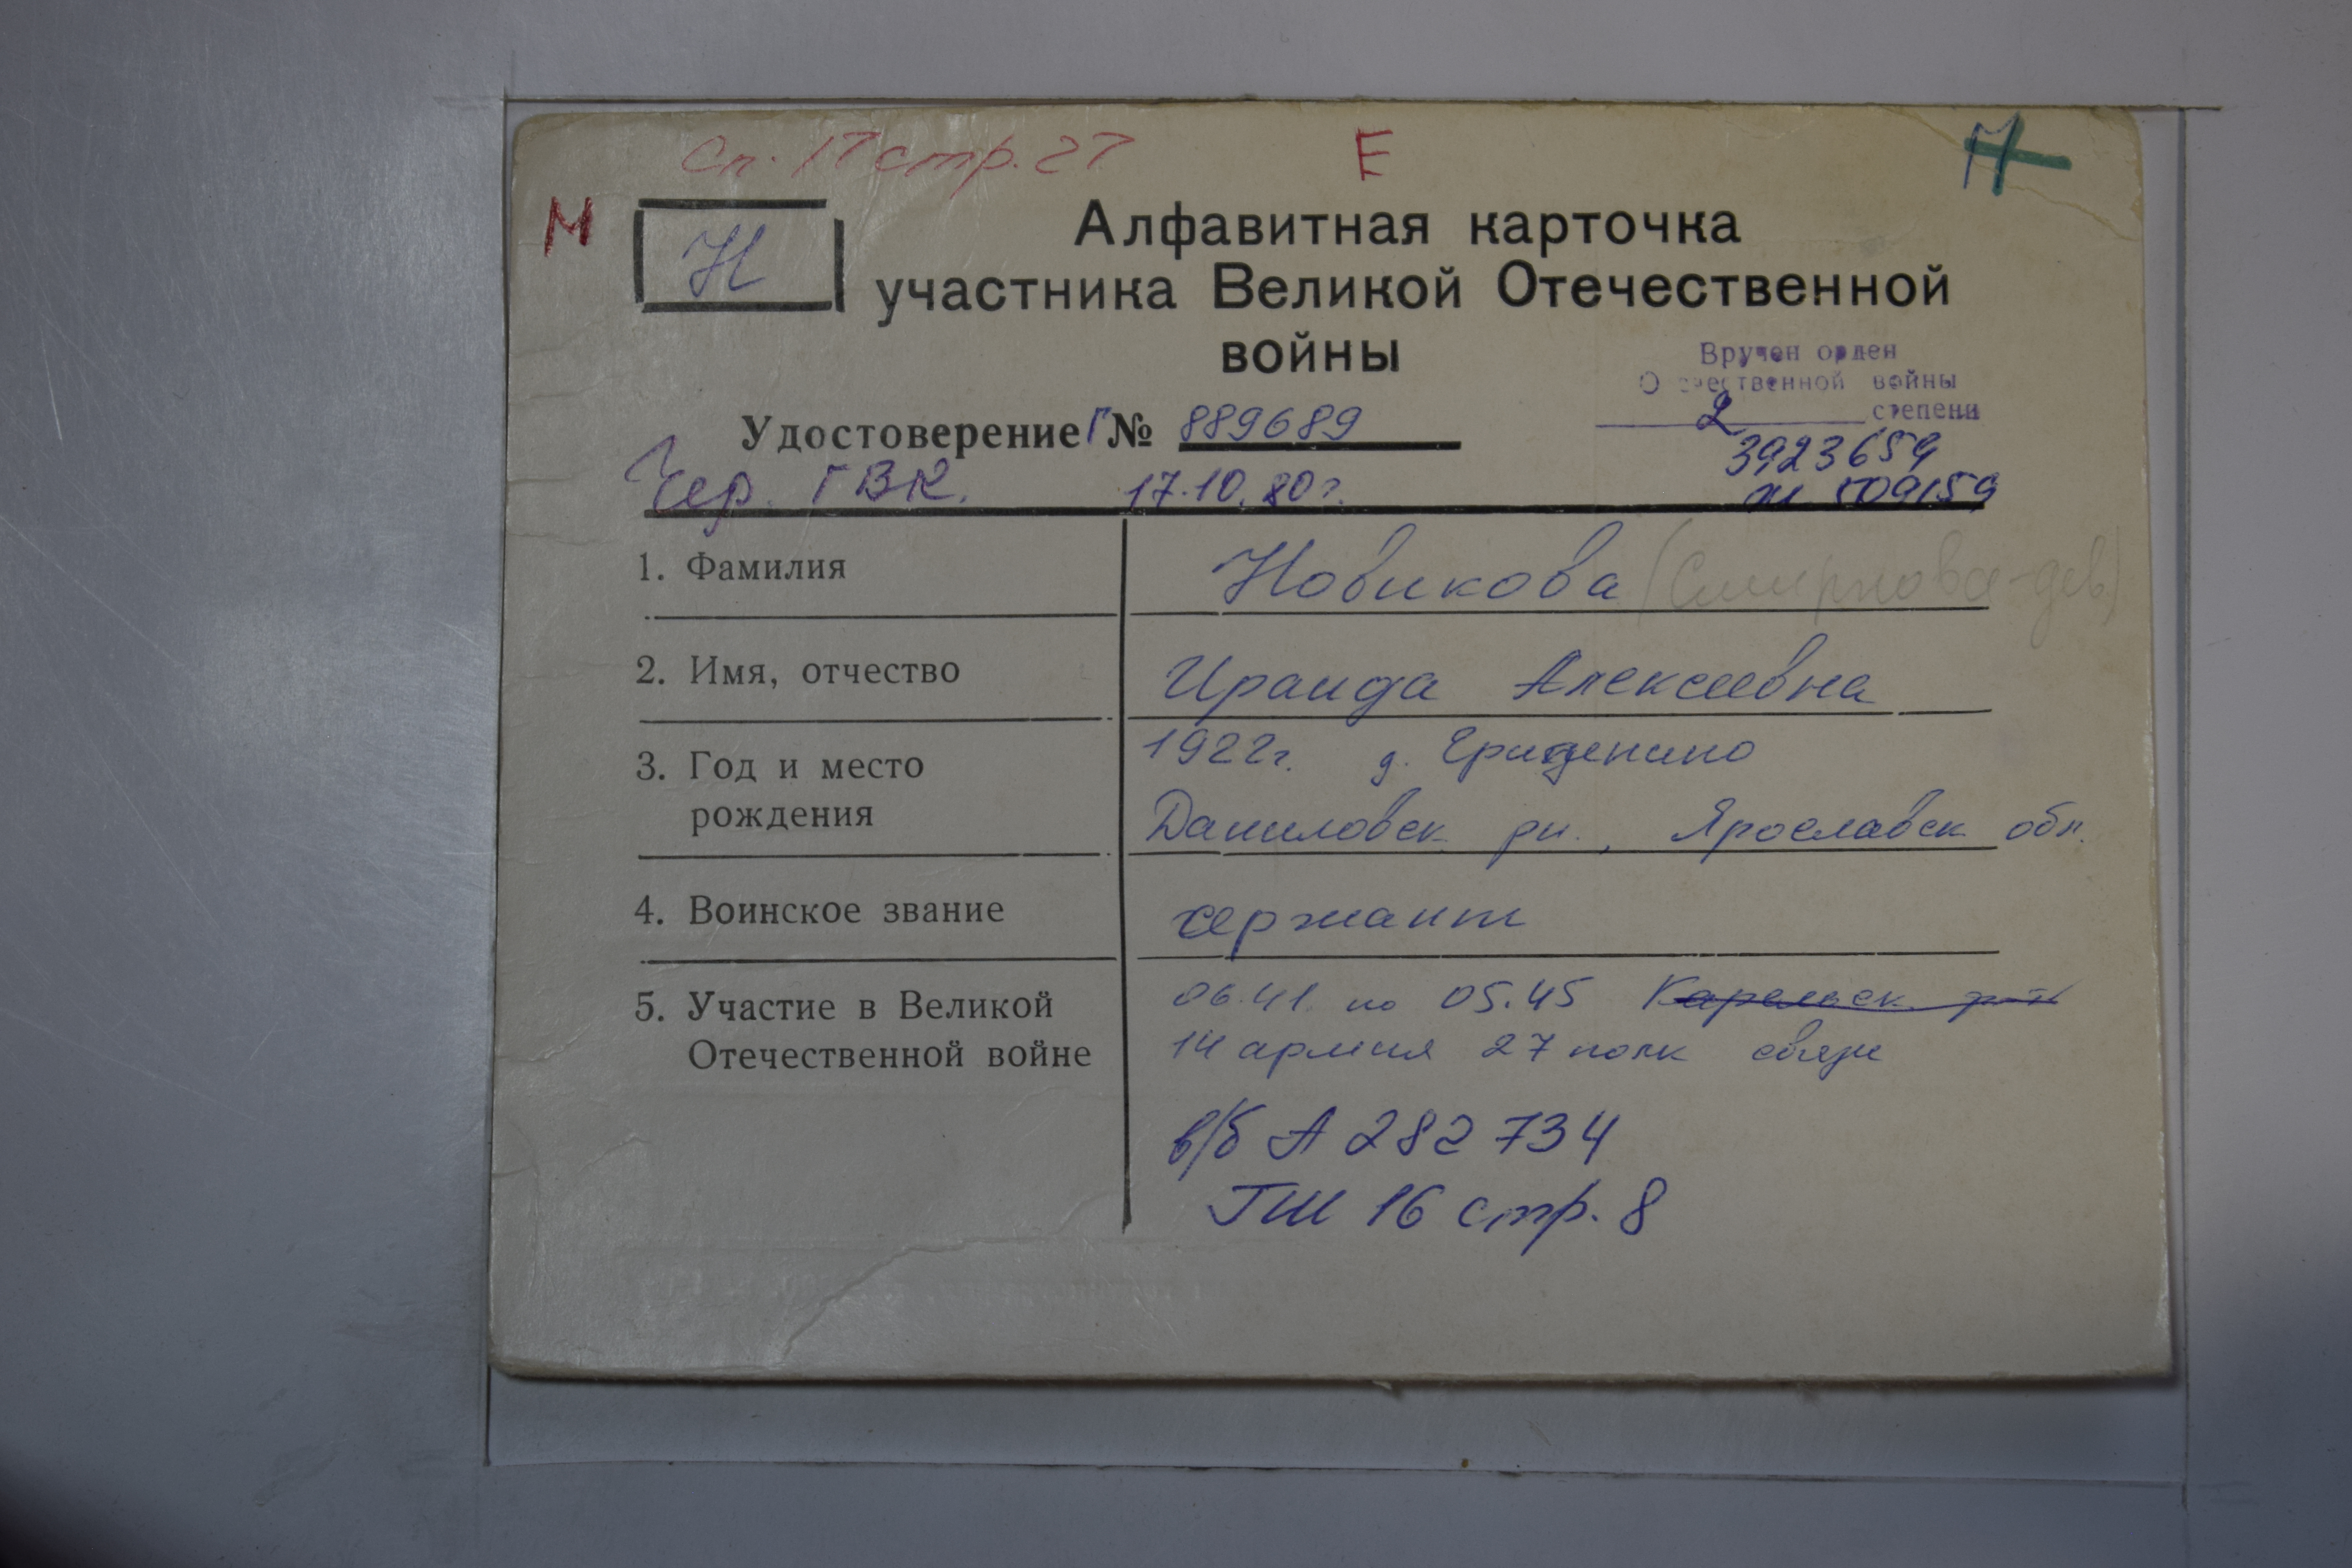 Сп. 17 стр. 27 Е
М Н
Алфавитная карточка
участника Великой Отечественной
войны
Вручен орден
Отечественной войны
2 степени
Удостоверение Г № 889689
3923659
Чер. ГВК. 17.10.80 г.
м 509159
1. Фамилия Новикова (Смирнова-дев)
2. Имя, отчество Ираида Алексеевна
3. Год и место 1922г. д.
рождения Даниловск рн., Ярославск обл.
4. Воинское звание сержант
5. Участие в Великой 06.41 по 05.45 Карельск. фр-т
Отечественной войне 14 армия 27 полк связи
в/б А 282 734
ГШ 16 стр. 8